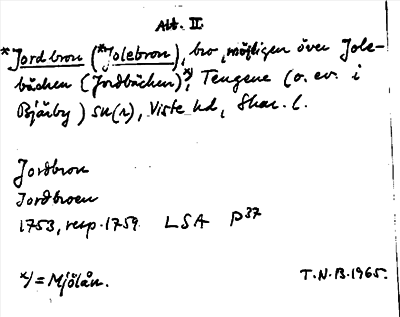 Alt. II.
*Jordbron (*Jolebron), bro, möjligen över Jole-
bäcken (Jordbäcken)x), Tengene (o. ev. i
Bjärby) sn(r), Viste hd, Skar. l.
Jordbron
Jordbroen
1753, resp. 1759 LSA P37
x) = Mjölån.
T.N.B. 1965.